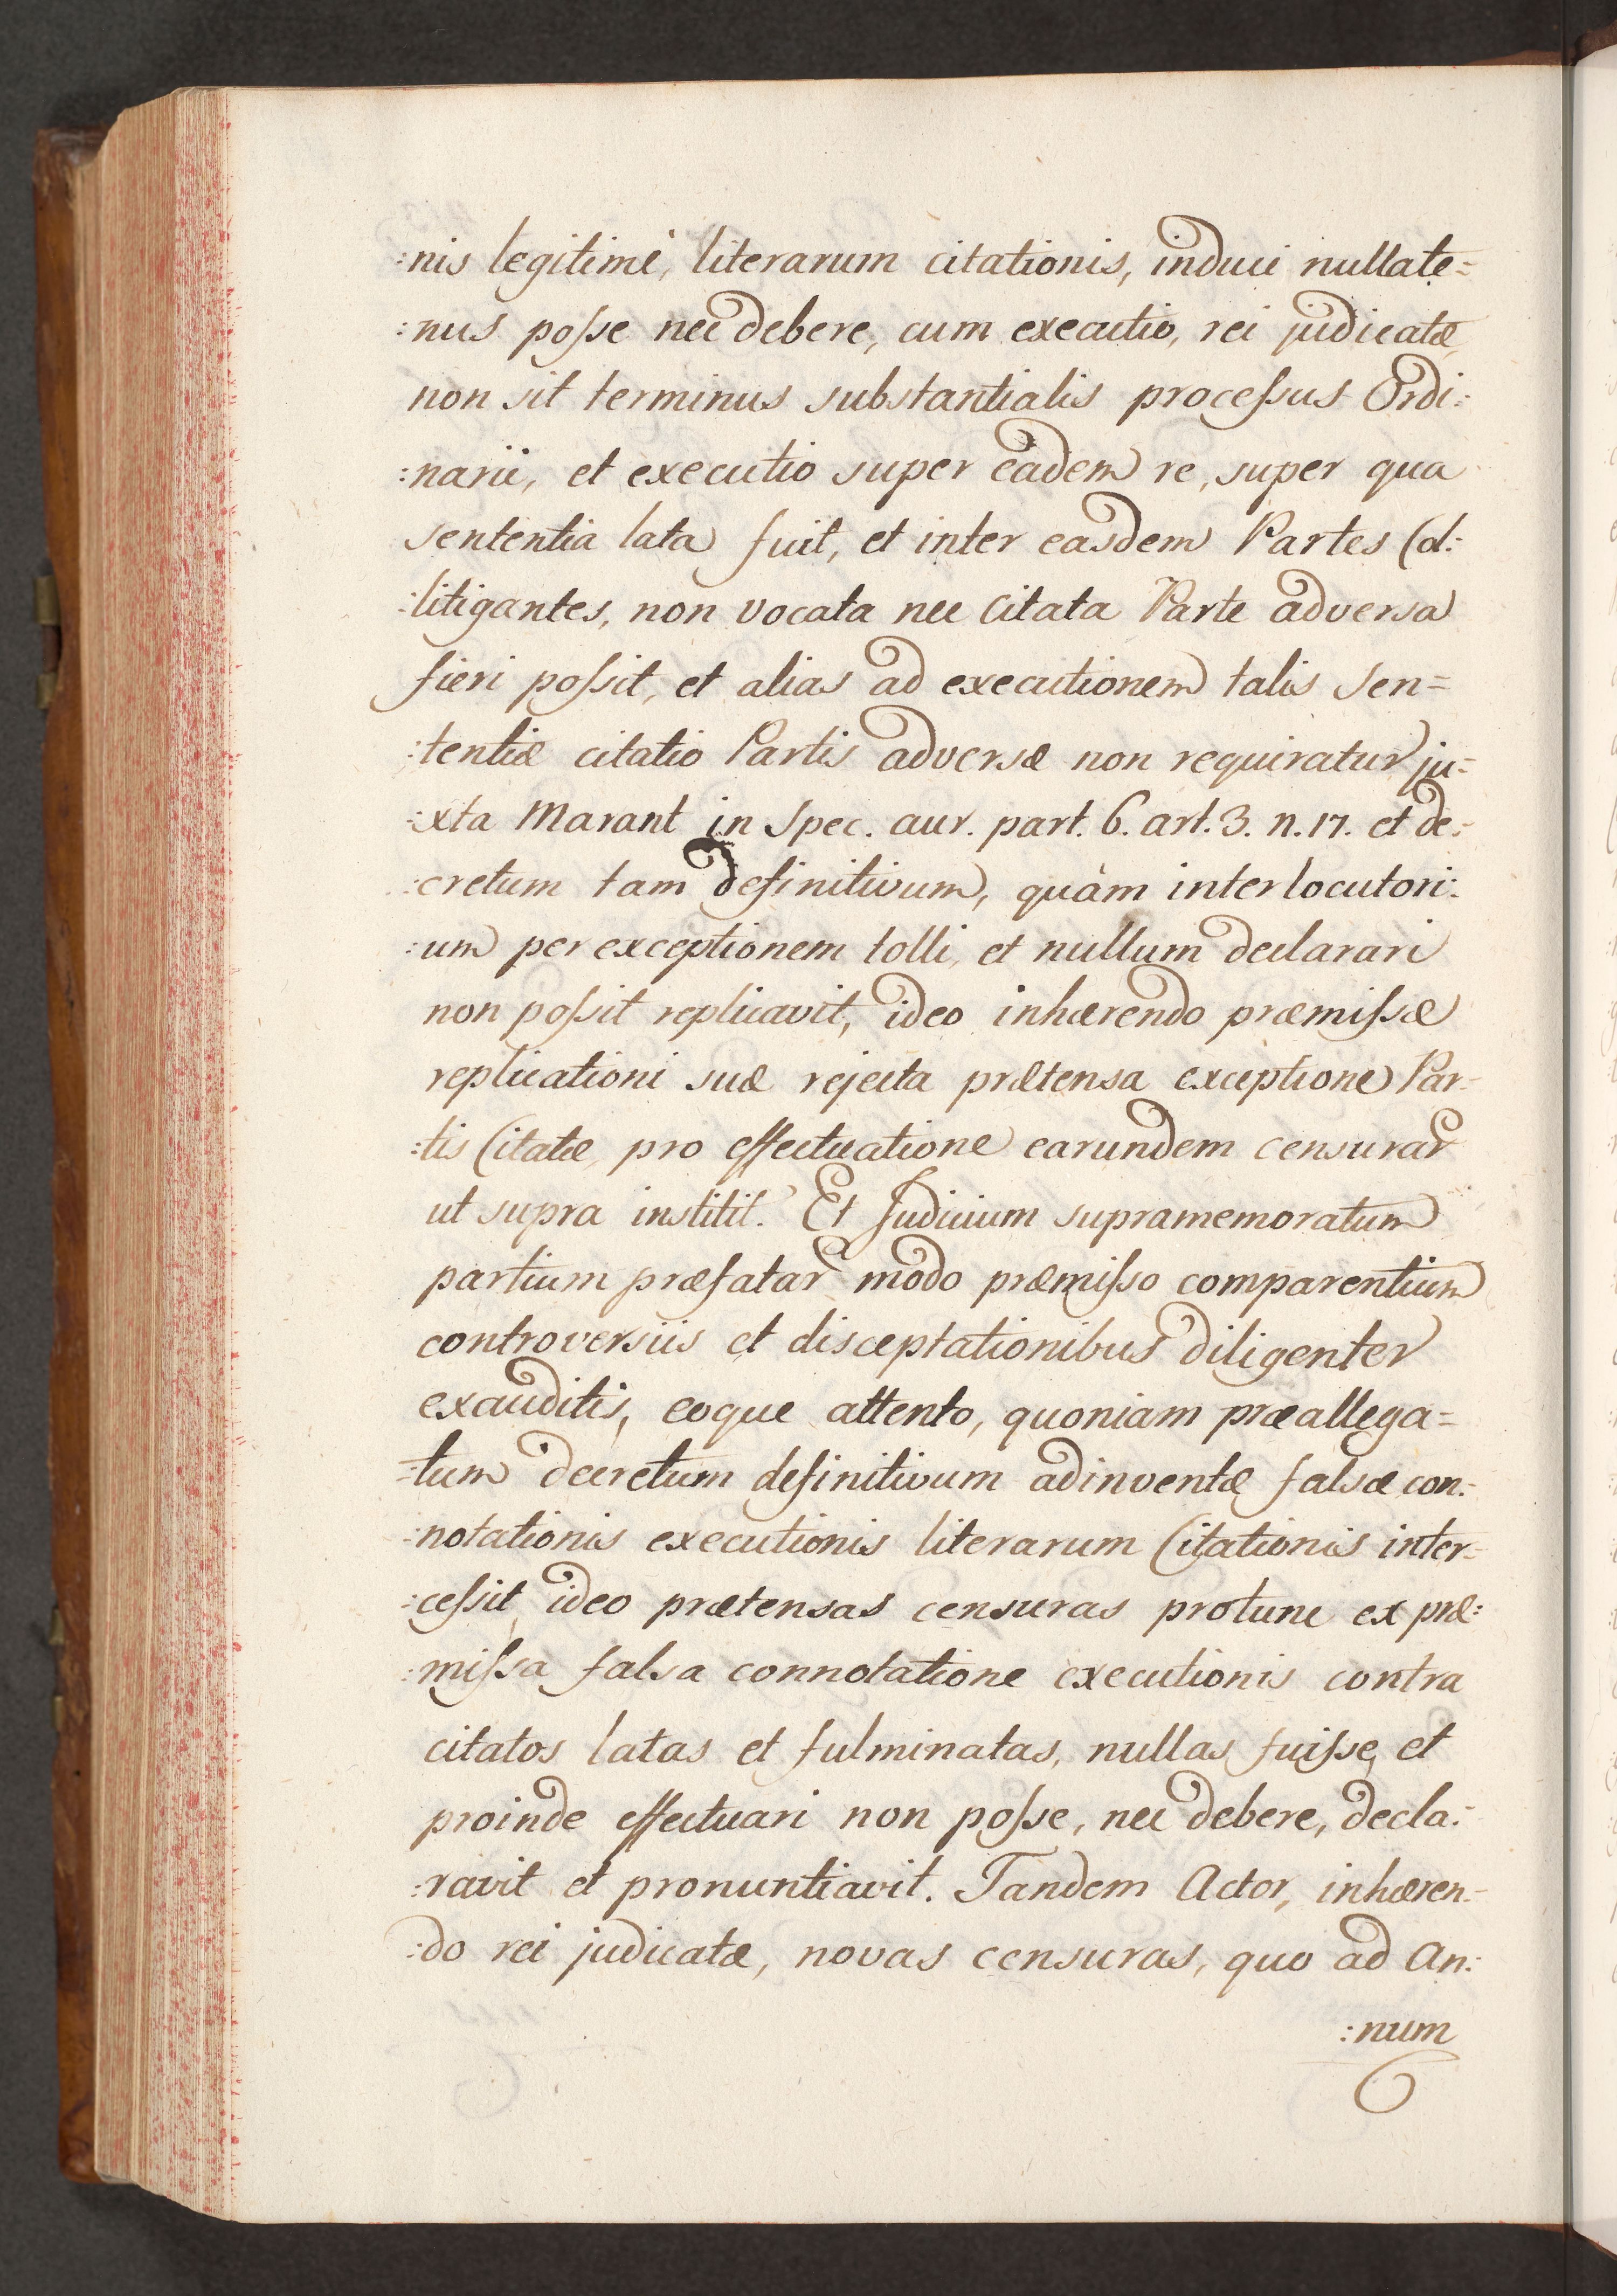 :nis legitimè, literarum citationis, induci nullate=
:nus poſse nec debere, cum executio, rei judicatæ
non sit terminus substantialis proceſsus Ordi:
:narii, et executio super eadem re, super qua
sententia lata fuit, et inter easdem Partes Col:
:litigantes, non vocata nec Citata Parte adversa
fieri poſsit, et alias ad executionem talis Sen=
:tentiæ citatio Partis adversæ non requiratur ju=
:xta Marant in Spec. aur. part. 6. art. 3. n. 17. et de:
:cretum tam definitivum, quàm interlocutori:
:um per exceptionem tolli, et nullum declarari
non poſsit replicavit, ideo inhærendo præmiſsæ
replicationi suæ rejecta prætensa exceptione Par=
:tis Citatæ, pro effectuatione earundem censurar
ut supra institit. Et Judicium supramemoratum
partium præfatar modo præmiſso comparentium
controversiis et disceptationibus diligenter
exauditis, eoque attento, quoniam præallega=
:tum decretum definitivum adinventæ falsæ con:
:notationis executionis literarum Citationis inter=
:ceſsit, ideo prætensas censuras protunc ex præ:
:miſsa falsa connotatione executionis contra
citatos latas et fulminatas, nullas fuiſse, et
proinde effectuari non poſse, nec debere, decla:
:ravit et pronuntiavit. Tandem Actor, inhæren=
:do rei judicatæ, novas censuras, quo ad An:
:num